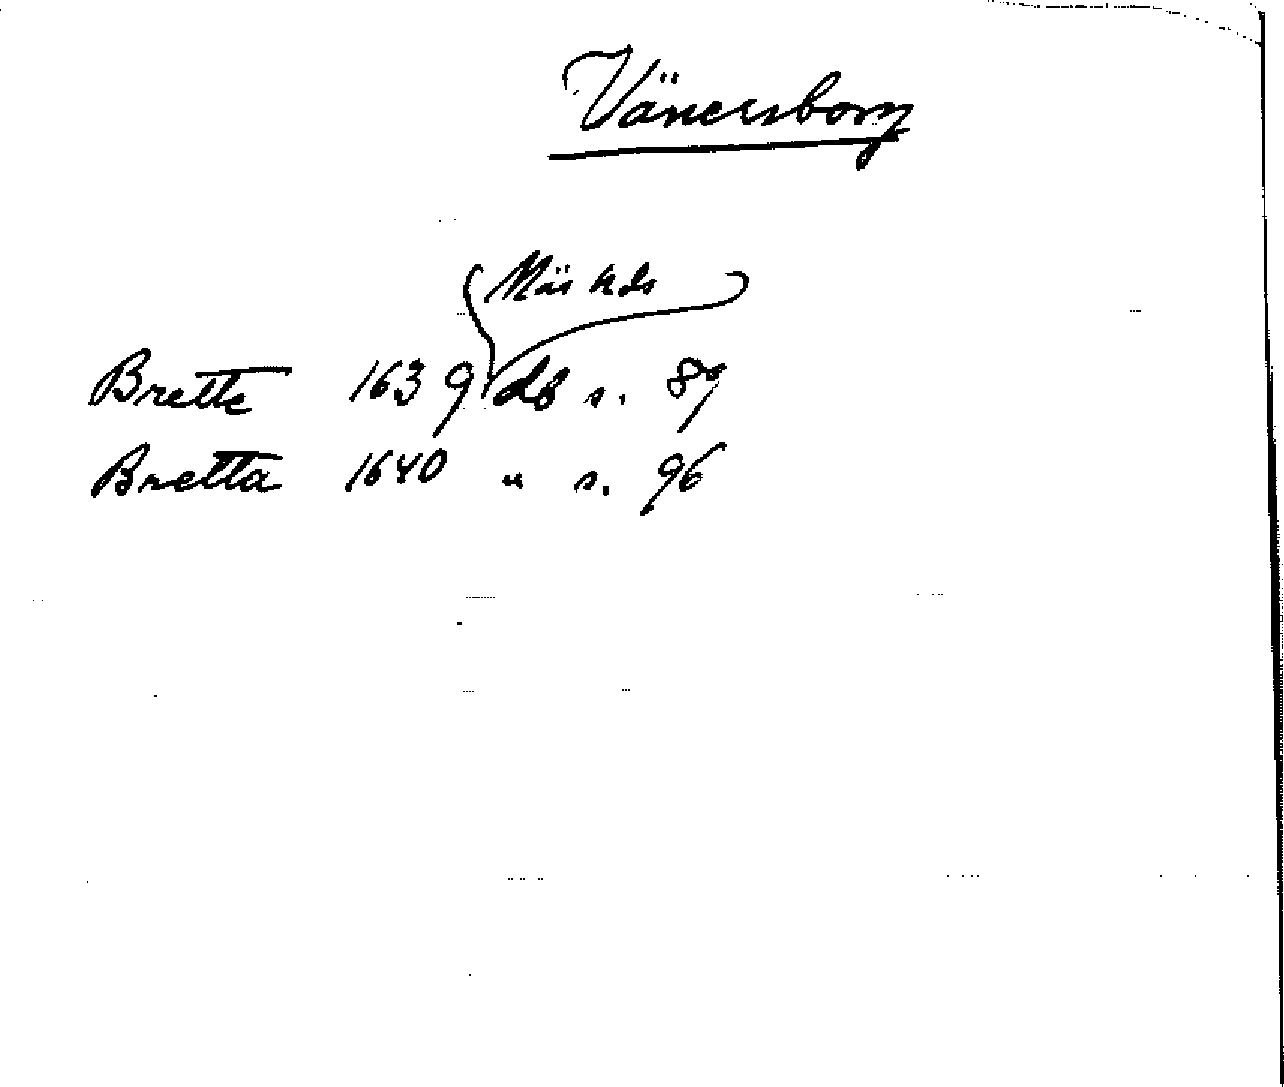 Vänersborg
Näs hds
Brette 1639 db s. 87
Bretta 1640 " s. 96